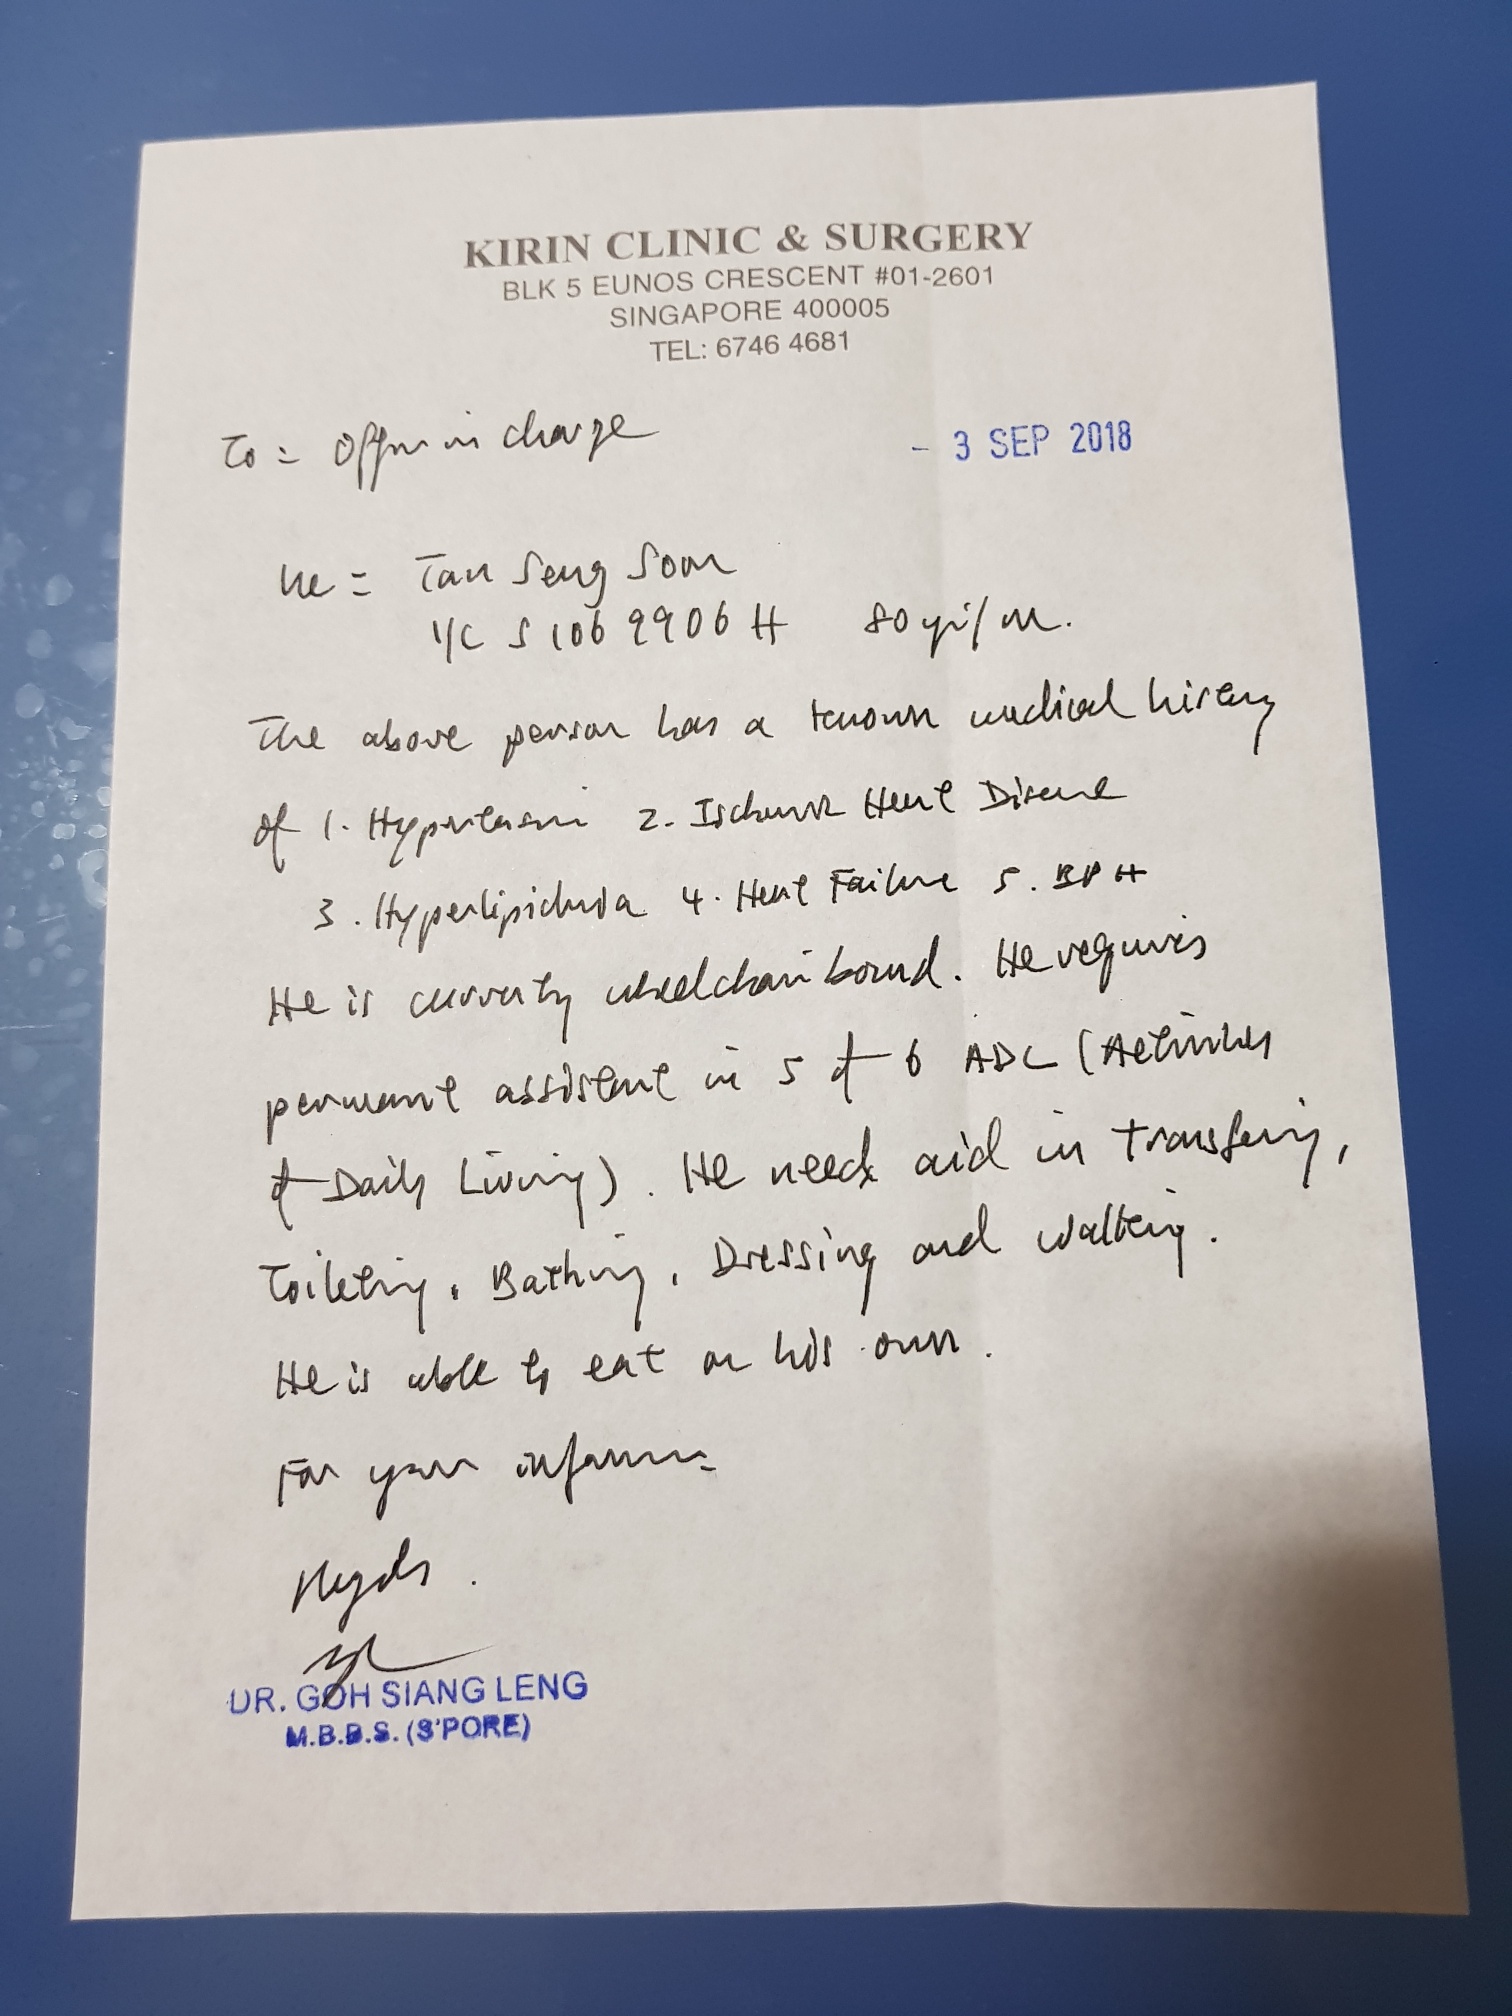 KIRIN CLINIC & SURGERY
BLK 5 EUNOS CRESCENT #01-2601
SINGAPORE 400005
TEL: 6746 4681
To = Officer in charge
- 3 SEP 2018
Re = Tan Seng Soon
I/C S1069906H 80 yr/M.
The above person has a known medical history
of 1. Hypertension 2. Ischemic Heart Disease
3. Hyperlipidemia 4. Heart Failure 5. BPH
He is currently wheelchair bound. He requires
permanent assistant in 5 of 6 ADL (Activities
of Daily Living). He needs aid in transfering,
Toileting, Bathing, Dressing and walking.
He is able to eat on his own.
For your information
Regds.
DR. GOH SIANG LENG
M.B.B.S. (S'PORE)